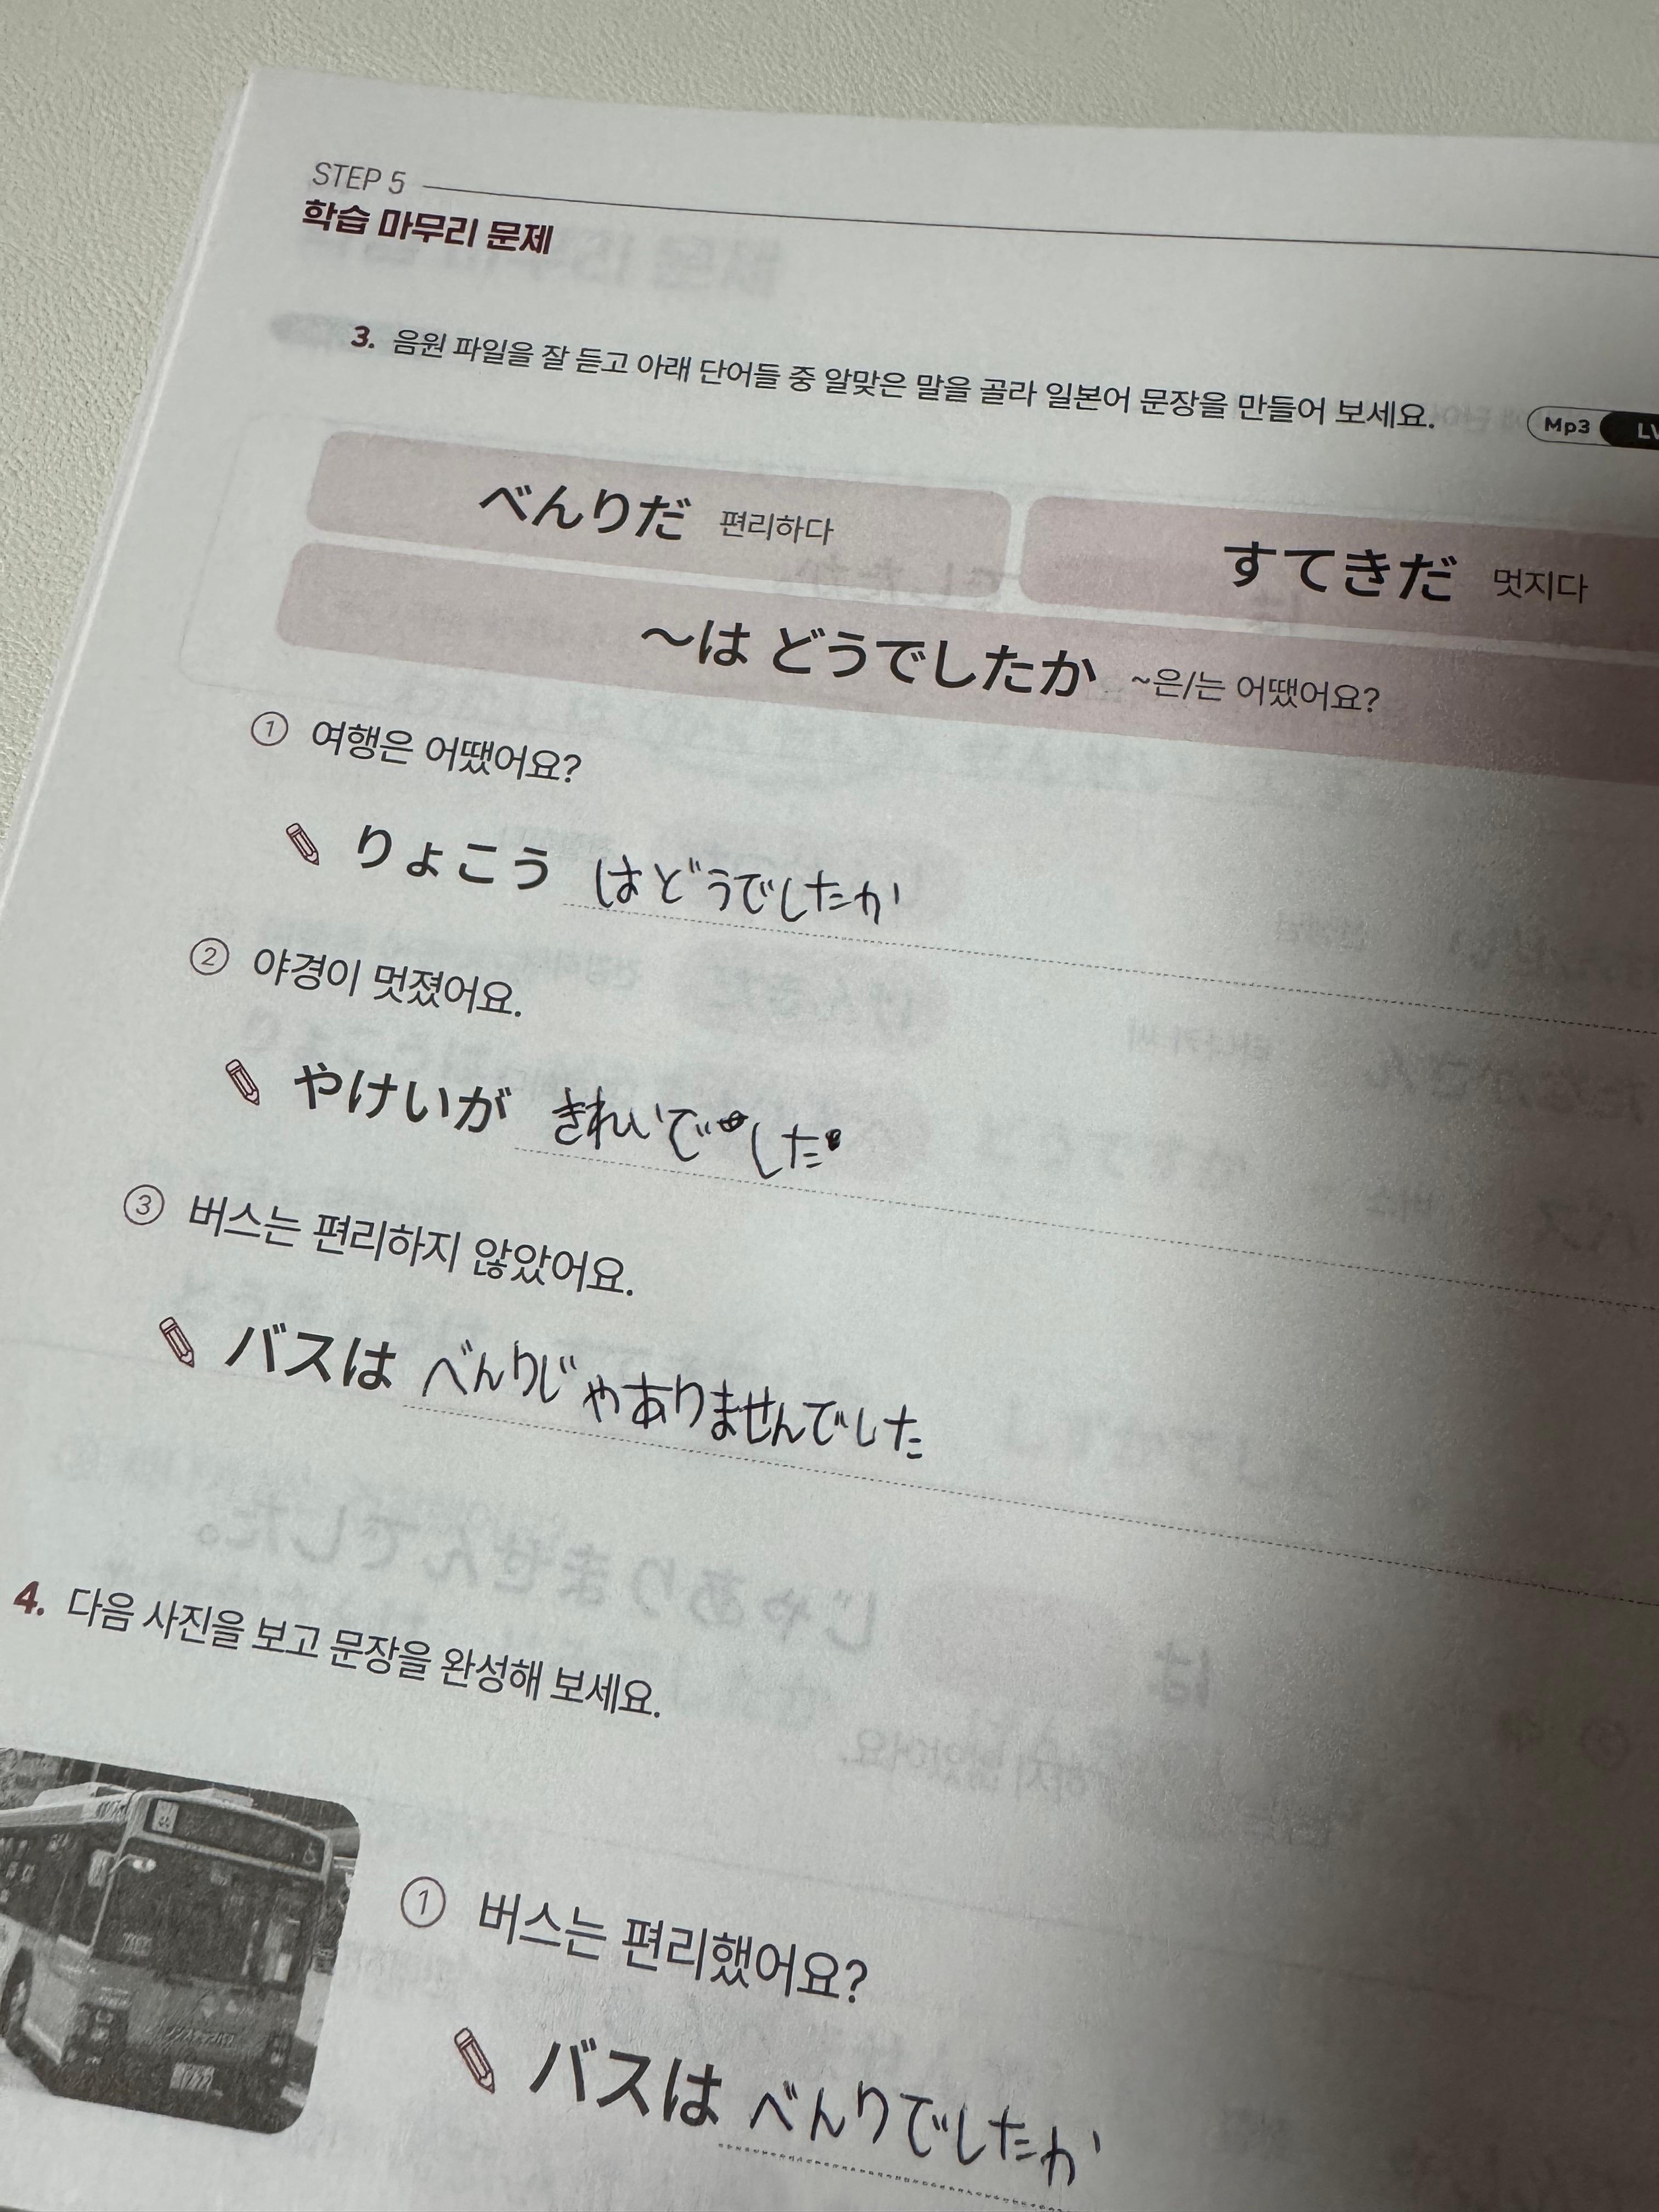 STEP 5
학습 마무리 문제
3. 음원 파일을 잘 듣고 아래 단어들 중 알맞은 말을 골라 일본어 문장을 만들어 보세요. Mp3
べんりだ 편리하다 すてきだ 멋지다
～は どうでしたか ~은/는 어땠어요?
① 여행은 어땠어요?
りょこう はどうでしたか
② 야경이 멋졌어요.
やけいが きれいでした
③ 버스는 편리하지 않았어요.
バスは べんりじゃありませんでした
4. 다음 사진을 보고 문장을 완성해 보세요.
① 버스는 편리했어요?
バスは べんりでしたか